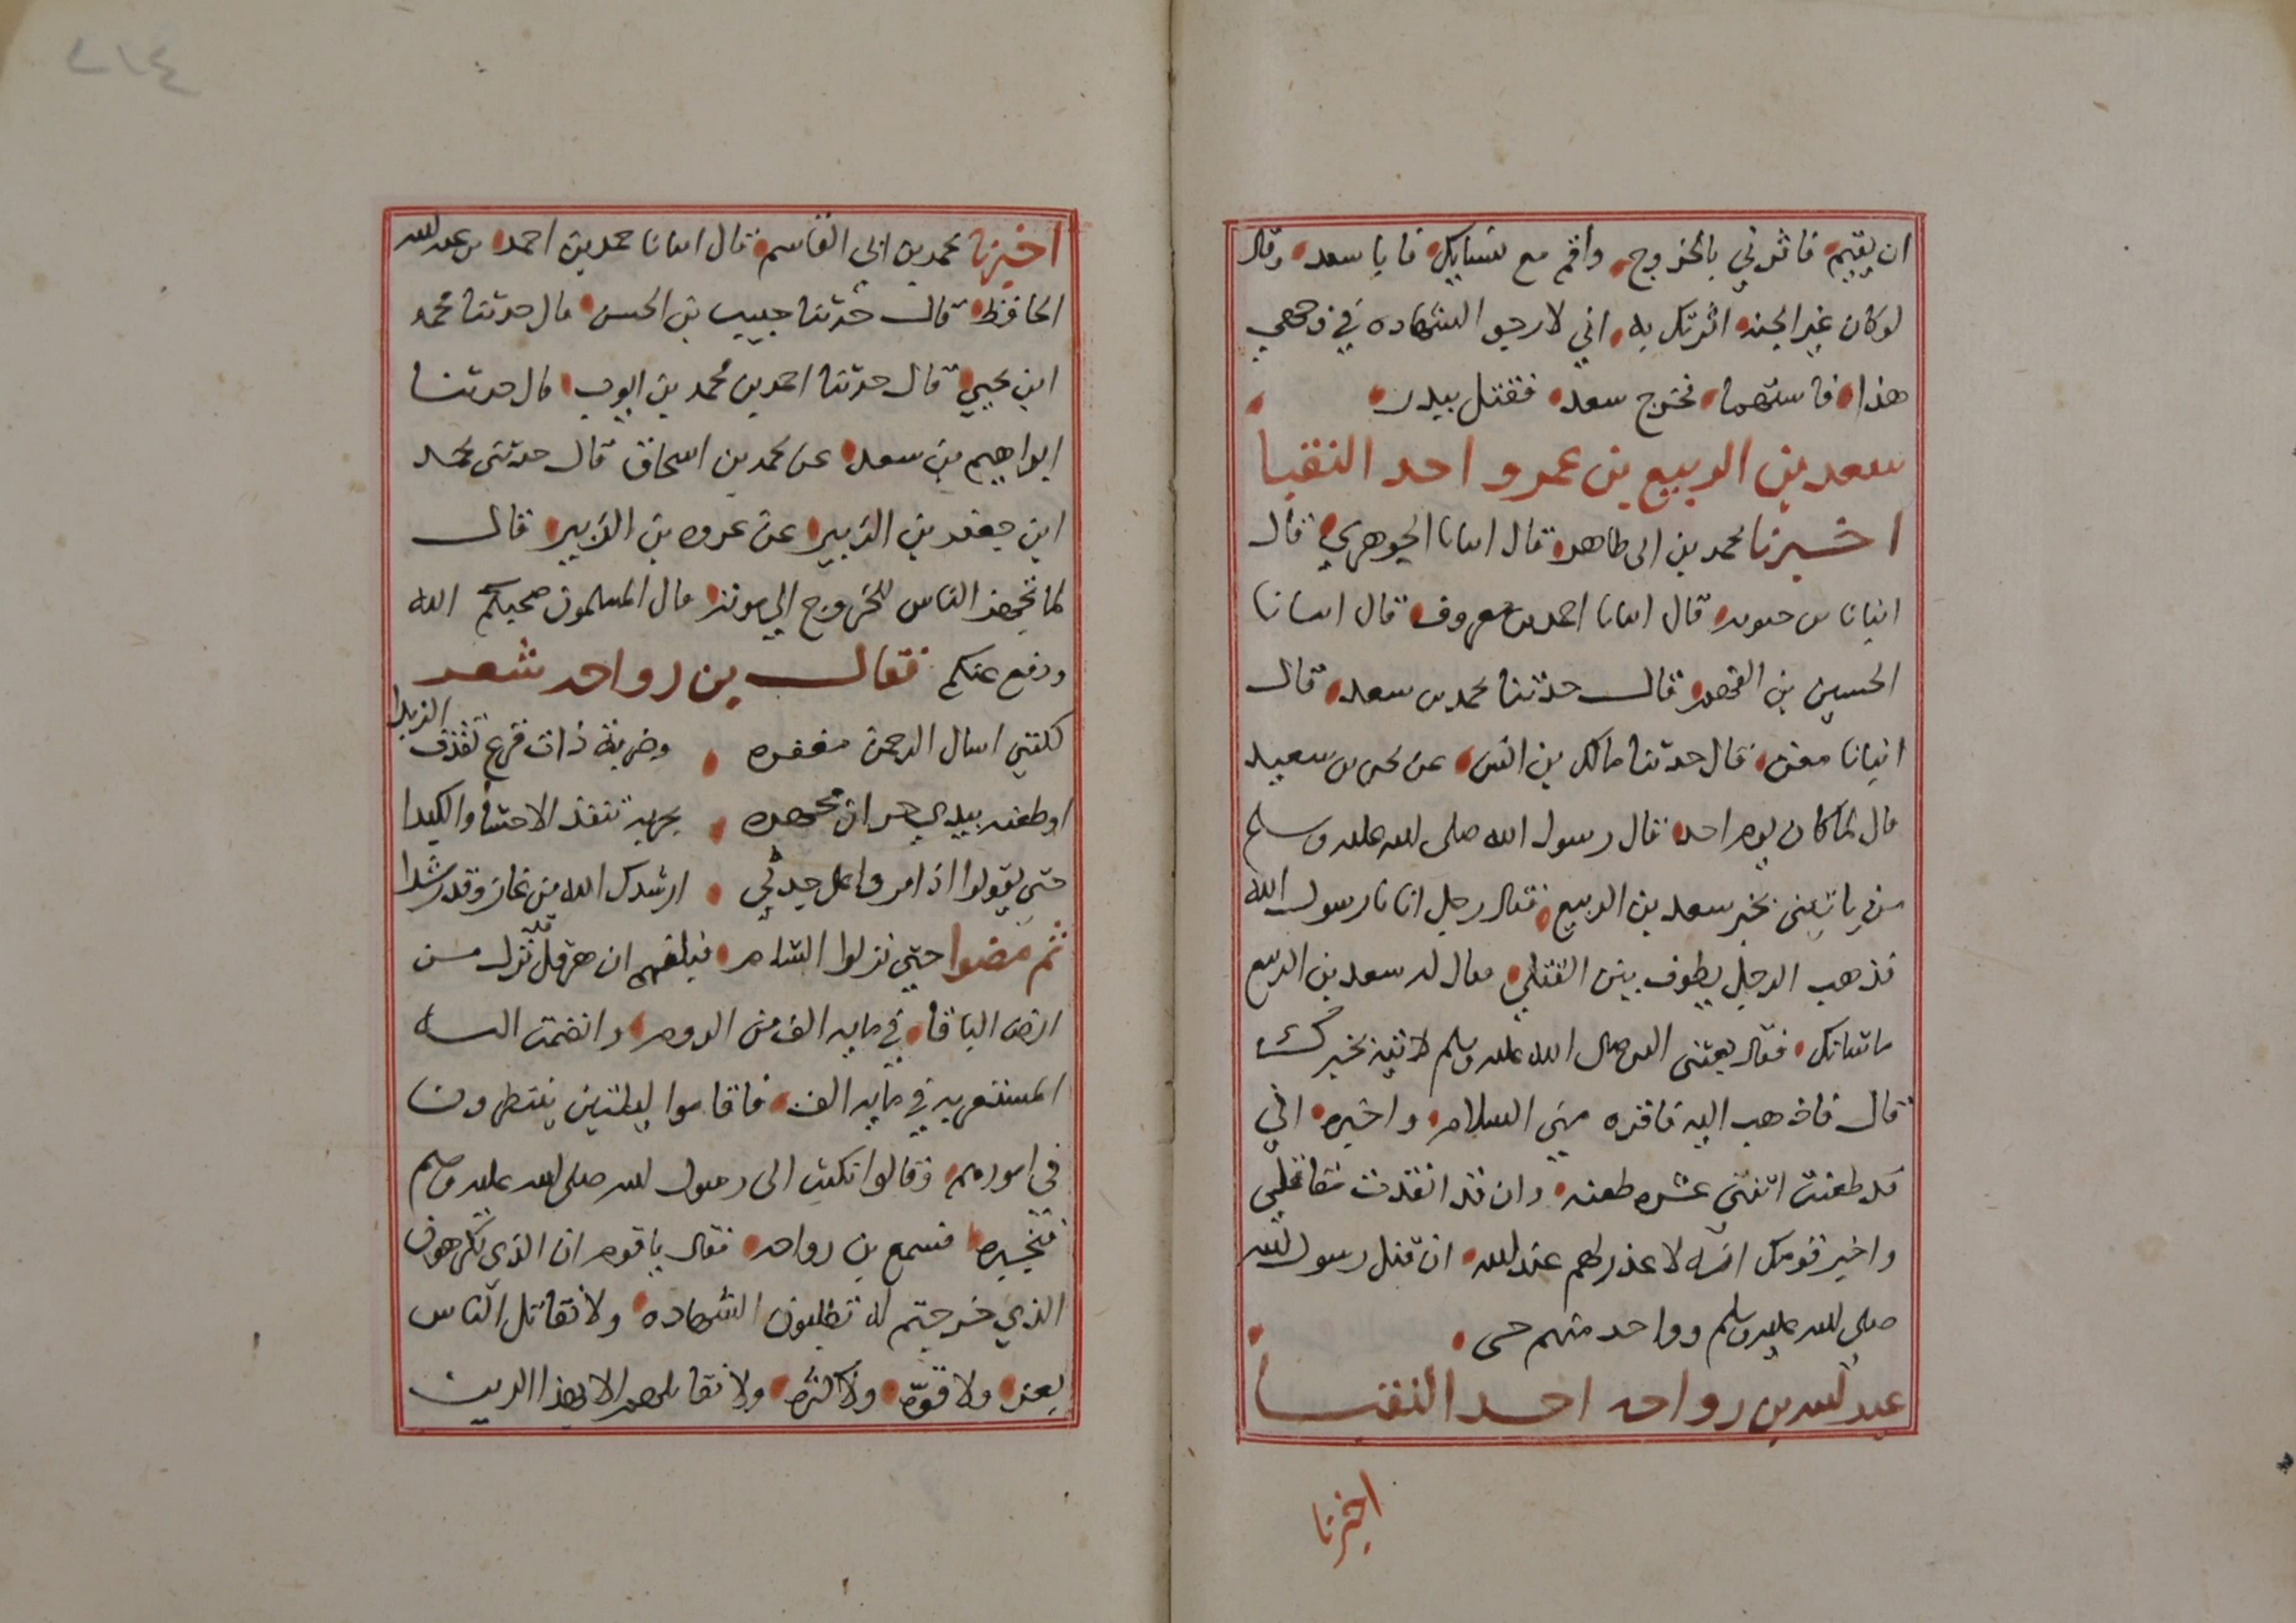 ان يقيم فاثرني بالخروج واقم مع نسايك فابا سعد وقال
لو كان غير الجنه اثرتك به اني لارجو الشهاده في وجهي
هذا فاستهما فخرج سعد فقتل ببدر
سعد بن الربيع بن عمرو احد النقبا
اخبرنا محمد بن ابى طاهر قال انبانا الجوهري قال
انبانا بن حيويه قال انبانا احمد بن معروف قال انبانا
الحسين بن الفهم قال حدثنا محمد بن سعد قال
انبانا معن قال حدثنا مالك بن انس عن يحيى بن سعيد
قال لما كان يوم احد قال رسول الله صلى الله عليه وسلم
من ياتينى بخبر سعد بن الربيع فقال رجل انا يا رسول الله
فذهب الرجل يطوف بين القتلي فقال له سعد بن الربيع
ما شانك فقال بعثنى النبي صلى الله عليه وسلم لاتيه بخبرك
قال فاذهب اليه فاقره مني السلام واخبره اني
قد طعنت اثنتى عشره طعنه وان قد انفذت مقاتلي
واخبر قومك انه لا عذر لهم عند الله ان قتل رسول الله
صلى الله عليه وسلم وواحد منهم حى
عبد الله بن رواحه احد النقبا
اخبرنا
اخبرنا محمد بن ابي القاسم قال انبانا حمد بن احمد بن عبد الله
الحافظ قال حدثنا حبيب بن الحسن قال حدثنا محمد
ابن يحيي قال حدثنا احمد بن محمد بن ايوب قال حدثنا
ابراهيم بن سعد عن محمد بن اسحاق قال حدثنى محمد
ابن جعفر بن الزبير عن عروه بن الزبير قال
لما تجهز الناس للخروج الي موته قال المسلمون صحبكم الله
ودفع عنكم فقال بن رواحه شعر
لكنني اسال الرحمن مغفره وضربة ذات فرع تقذف الزبدا
او طعنه بيدي حران مجهره بحربه تنفذ الاحشا والكبدا
حتي يقولوا اذا مروا على جدثي ارشدك الله من غاز وقد رشدا
ثم مضوا حتي نزلوا الشام فبلغهم ان هرقل قد نزل من
ارض البلقا في مايه الف من الروم وانضمت اليه
المستعربه في مايه الف فاقاموا ليلتين ينتظرون
في امورهم وقالوا نكتب الى رسول الله صلى الله عليه وسلم
فنخبره فسمع بن رواحه فقال يا قوم ان الذى تكرهون
الذي خرجتم له تطلبون الشهاده ولا نقاتل الناس
بعدد ولا قوّه ولا كثره ولا نقاتلهم الا بهذا الدين